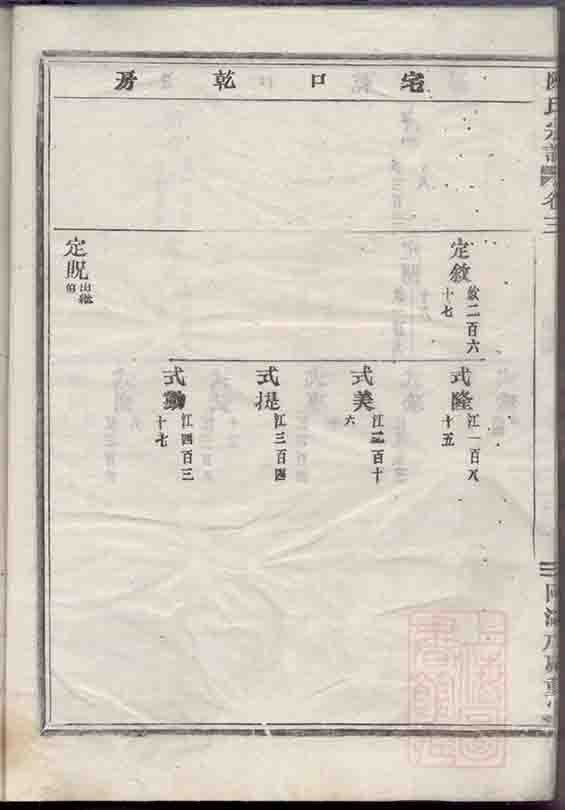 宅口乾房
定敘
敘二百六
十七
定貺
出繼
式隆
江一百八
十五
式美
江二百十
六
式提
江三百四
式勤
江四百三
十七
氏宗譜
卷三